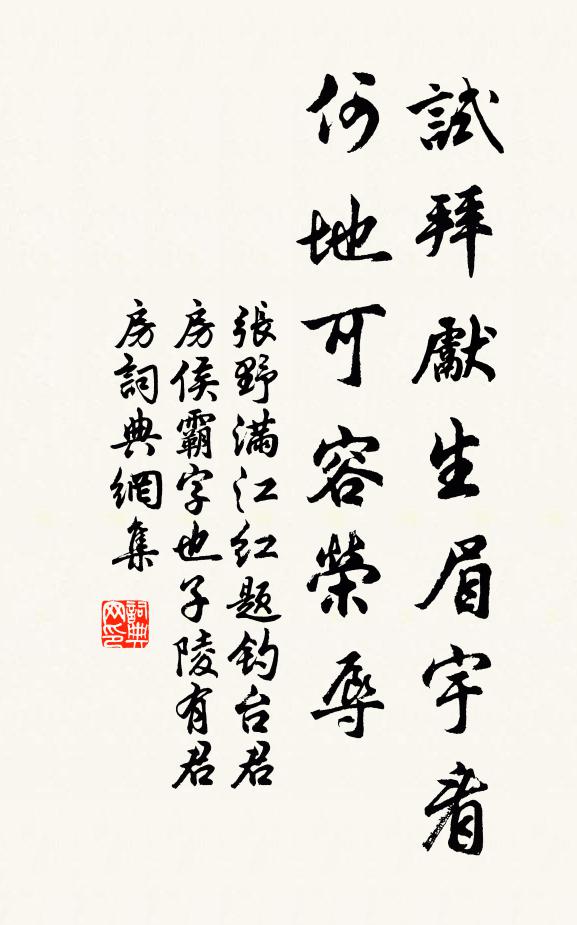 試拜獻生眉宇看
何地可容榮辱
張野滿江紅題釣台君
房侯霸字也子陵有君
房詞典網集
詞典网印